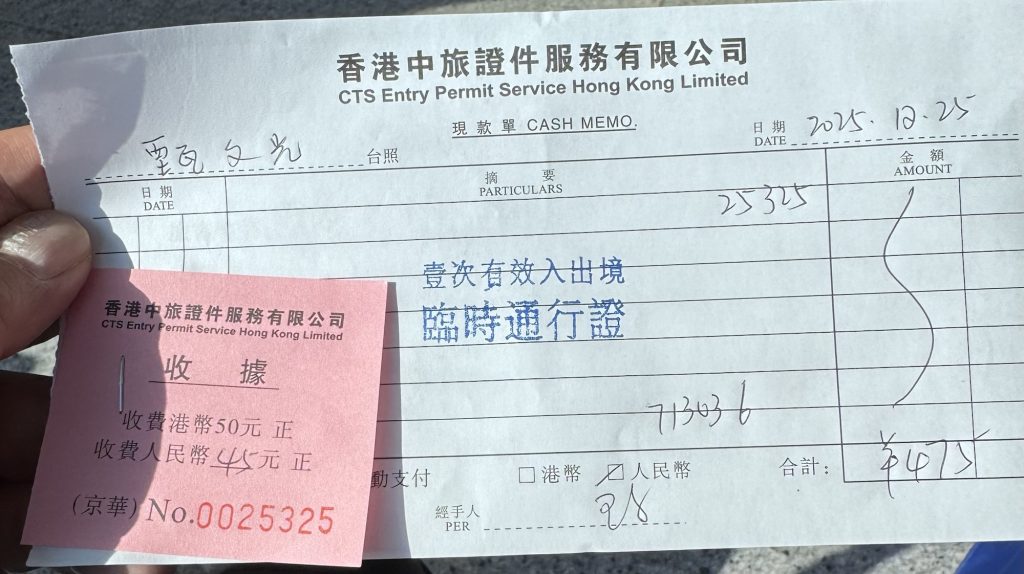 香港中旅證件服務有限公司
CTS Entry Permit Service Hong Kong Limited
現款單 CASH MEMO.
文光 台照
日期 DATE 2025.12.25
日期 DATE
摘要 PARTICULARS
金額 AMOUNT
25325
壹次有效入出境
臨時通行證
713036
動支付
港幣
人民幣
合計: ¥475
經手人 PER
香港中旅證件服務有限公司
CTS Entry Permit Service Hong Kong Limited
收據
收費港幣50元 正
收費人民幣45元 正
(京華) No.0025325